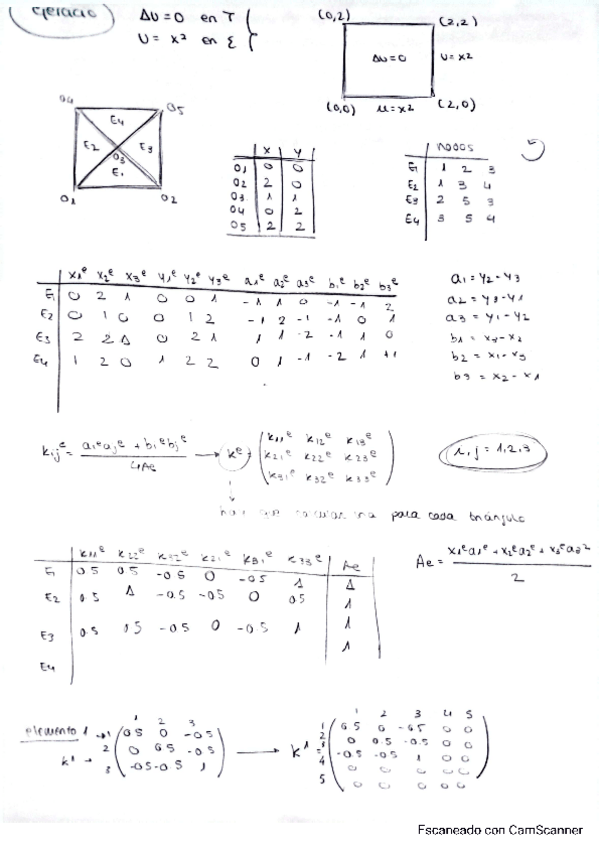 ejercicio
Δu=0 en T
U = x² en Σ
(0,2) (2,2)
Δu=0 U=x²
(0,0) u=x² (2,0)
04 05
E4
E2 03 E3
E1
01 02
x y
01 0 0
02 2 0
03 1 1
04 0 2
05 2 2
nodos
E1 1 2 3
E2 1 3 4
E3 2 5 3
E4 3 5 4
x1e x2e x3e y1e y2e y3e a1e a2e a3e b1e b2e b3e
E1 0 2 1 0 0 1 -1 1 0 -1 -1 2
E2 0 1 0 0 1 2 -1 2 -1 -1 0 1
E3 2 2 1 0 2 1 1 1 -2 -1 1 0
E4 1 2 0 1 2 2 0 1 -1 -2 1 +1
a1 = y2-y3
a2 = y3-y1
a3 = y1-y2
b1 = x3-x2
b2 = x1-x3
b3 = x2-x1
kije = aieaje + biebje / 4Ae → ke = (k11e k12e k13e
k21e k22e k23e
k31e k32e k33e)
i,j = 1,2,3
hay que calcular una para cada triángulo
k11e k22e k32e k21e k31e k33e Ae
E1 0.5 0.5 -0.5 0 -0.5 1 1
E2 0.5 1 -0.5 -0.5 0 0.5 1
E3 0.5 0.5 -0.5 0 -0.5 1 1
E4 1
Ae = x1ea1e + x2ea2e + x3ea3e / 2
elemento 1
1 2 3
1 0.5 0 -0.5
2 0 0.5 -0.5
3 -0.5 -0.5 1
k1 → k1 =
1 2 3 4 5
1 0.5 0 -0.5 0 0
2 0 0.5 -0.5 0 0
-0.5 -0.5 1 0 0
4 0 0 0 0 0
5 0 0 0 0 0
Escaneado con CamScanner